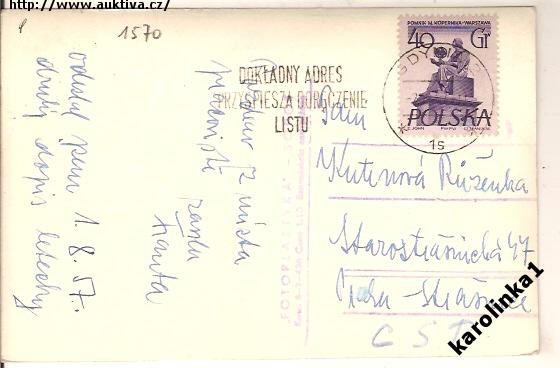 http://www.auktiva.cz/
1570
POMNIK M. KOPERNIKA-WARSZAWA
40 Gr
POLSKA
GDY
1s
DOKŁADNY ADRES
PRZYSPIESZA DORĘCZENIE
LISTU
z místa
zasílá
odeslal jsem 1. 8. 57.
druhý dopis letecky
"FOTOPLASTYKA"
Paní
Kutenová Růženka
Starostrašnická 47
Praha - Strašnice
ČSR
karolinka1